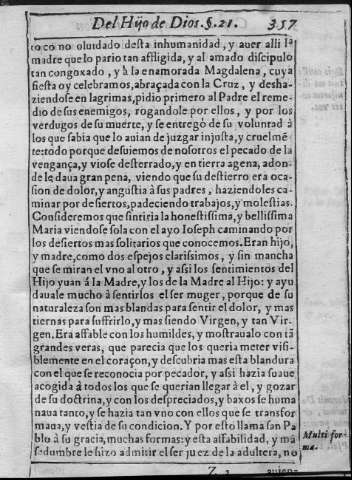 Del Hijo de Dios. §. 21. 357
to co no oluidado desta inhumanidad, y auer alli la
madre que lo pario tan afligida, y al amado discipulo
tan congoxado, y à la enamorada Magdalena, cuya
fiesta oy celebramos, abraçada con la Cruz, y desha-
ziendose en lagrimas, pidio primero al Padre el reme-
dio de sus enemigos, rogandole por ellos, y por los
verdugos de su muerte, y se entregò de su voluntad à
los que sabia que lo auian de juzgar injusta, y cruelmẽ
te: todo porque desuiemos de nosotros el pecado de la
vengança, y viose desterrado, y en tierra agena, adon-
de le daua gran pena, viendo que su destierro era oca-
sion de dolor, y angustia à sus padres, haziendoles ca-
minar por desiertos, padeciendo trabajos, y molestias.
Consideremos que sintiria la honestissima, y bellissima
Maria viendose sola con el ayo Ioseph caminando por
los desiertos mas solitarios que conocemos. Eran hijo,
y madre, como dos espejos clarissimos, y sin mancha
que se miran el vno al otro, y assi los sentimientos del
Hijo yuan à la Madre, y los de la Madre al Hijo: y ayu
dauale mucho à sentirlos el ser muger, porque de su
naturaleza son mas blandas para sentir el dolor, y mas
tiernas para suffrirlo, y mas siendo Virgen, y tan Vir-
gen. Era affable con los humildes, y mostraualo con tã
grandes veras, que parecia que los queria meter visi-
blemente en el coraçon, y descubria mas esta blandura
con el que se reconocia por pecador, y assi hazia suaue
acogida à todos los que se querian llegar à el, y gozar
de su doctrina, y con los despreciados, y baxos se huma
naua tanto, y se hazia tan vno con ellos que se transfor
maua, y vestia de su condicion. Y por esto llama san Pa
blo à su gracia, muchas formas: y esta affabilidad, y mã
sedumbre le hizo admitir el ser juez de la adultera, no
Multi for
ma.
Z 3